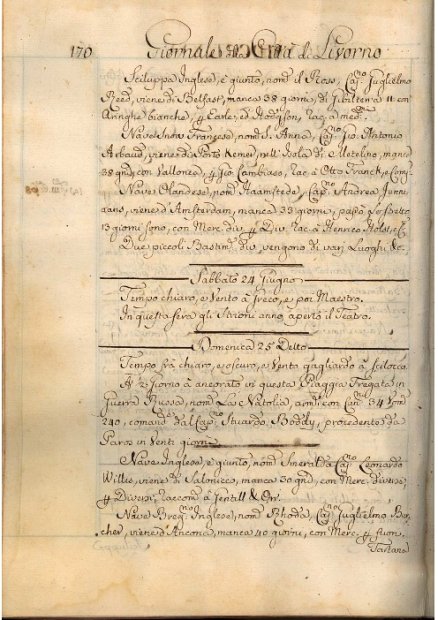 170 Giornale Città di Livorno
Sciluppa Inglese, è giunto, nom.ᵗᵒ il Ross, Cap.ⁿᵒ Guglielmo
Reed, viene di Belfast, manca 38 giorni, di Gibilterra 11 con
Aringhe bianche, p Earle, ed Hodgson, rac. a med.ᵐⁱ
Nave Francese, nom. S. Anna, Cap.ⁿᵒ Gio. Antonio
Arbaud, viene di Porto nell' Isola di Metelino, manca
38 gni con Vallonea, p Gio. Cambiaso, rac. à Otto Franck, e Comp.
Nave Olandese, nom. Haamstede, Cap.ⁿᵒ Andrea
viene d'Amsterdam, manca 33 giorni, passò lo
13 giorni sono, con Merc. div. p Div. rac. à Henrico
Due piccoli Bastim.ᵗⁱ div. vengono di varj Luoghi &c.
Sabbato 24 Giugno
Tempo chiaro, e Vento à Greco, e poi Maestro.
In questa sera gli Istrioni anno aperto il Teatro.
Domenica 25 Detto
Tempo frà chiaro, e oscuro, e Vento gagliardo à Scilocco.
A 2 giorno à ancorato in questa Piaggia Fregata in
Guerra Russa, nom. La Natolia, arm. con Can.ⁿⁱ 34 Uom.
240, comand. dal Cap.ⁿᵒ Stuardo Boddy, procedente da
Paros in Venti giorni
Nave Inglese, è giunto, nom. Smeralda Cap.ⁿᵒ Leonardo
Willis, viene di Salonicco, manca 30 gni, con Merc. diverse
p Diversi, raccom. à Jentill & Orr.
Nave Breg.ⁿᵒ Inglese, nom. Rhoda, Cap.ⁿᵒ Guglielmo
viene d'Ancona, manca 40 giorni, con Merc. p fuori